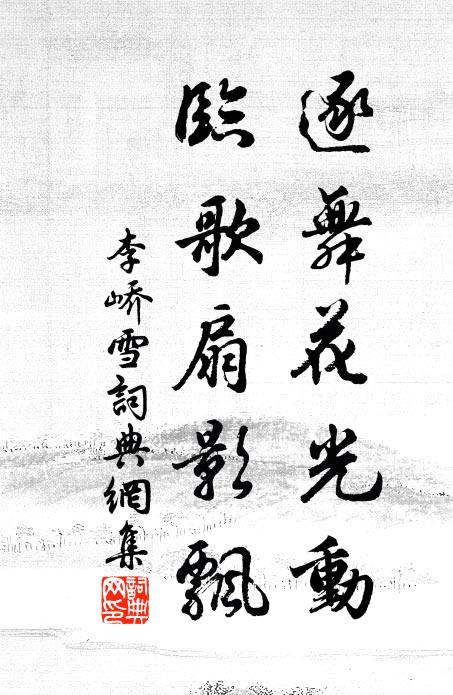 逐舞花光動
臨歌扇影飄
李嶠雪詞典網集
詞典网印